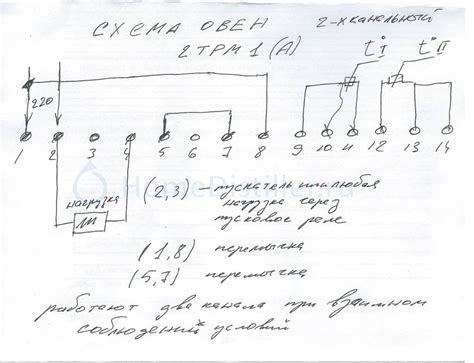 СХЕМА ОВЕН
2ТРМ1 (А)
2-х канальный
t°I
t°II
220
1 2 3 4 5 6 7 8 9 10 11 12 13 14
HomeDistiller.ru
нагрузка
(2,3) – пускатель или любая
нагрузка через
пусковое реле
(1,8) перемычка
(5,7) перемычка
работают два канала при взаимном
соблюдении условий